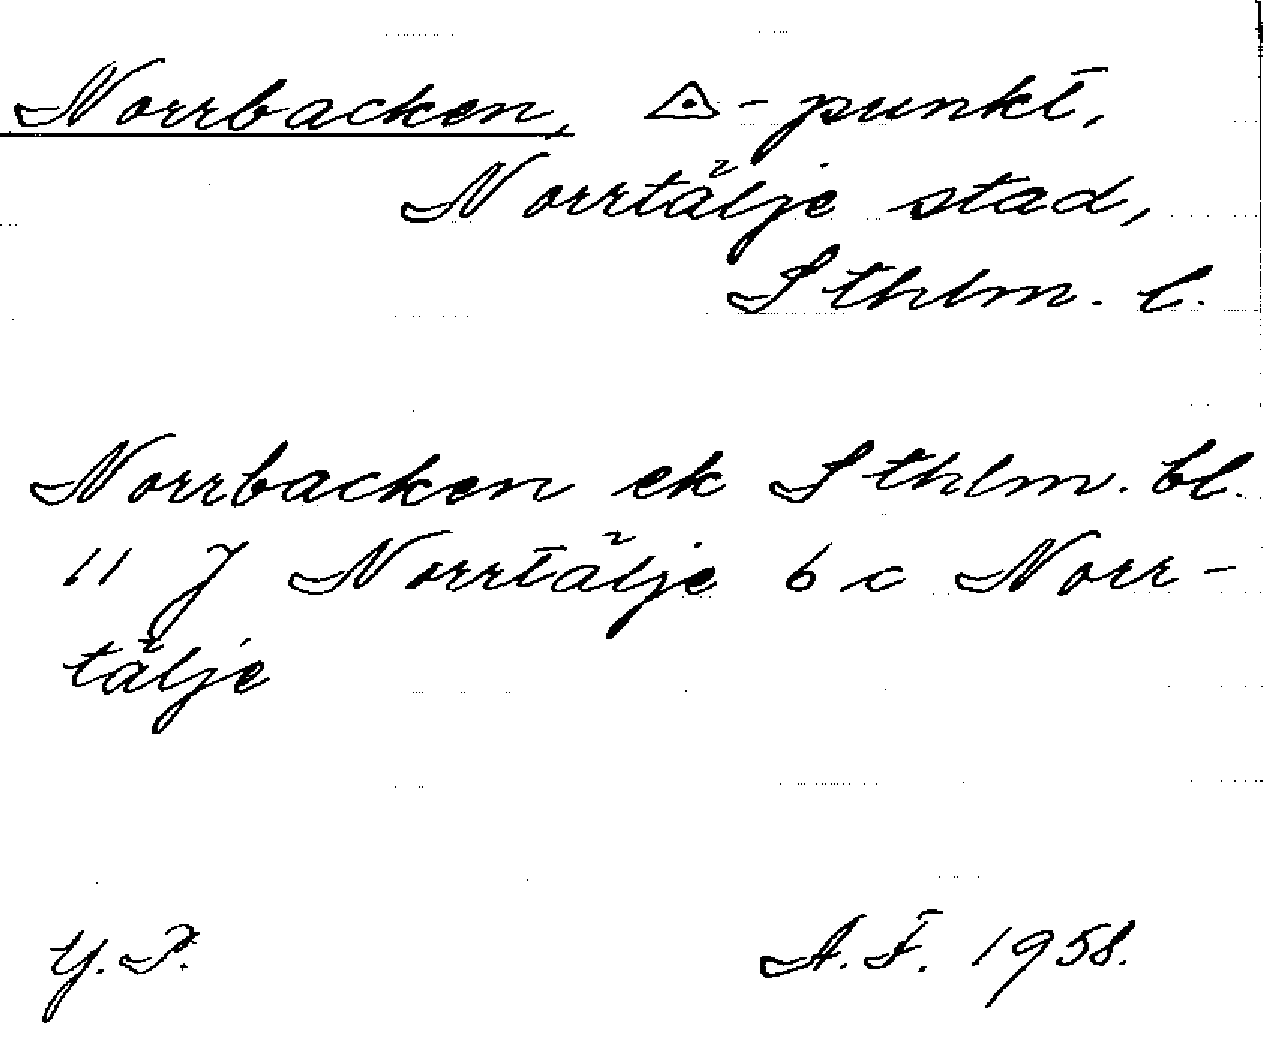 Norrbacken, ◬-punkt,
Norrtälje stad,
Sthlm. l.
Norrbacken ek Sthlm. bl.
11 J Norrtälje 6 c Norr-
tälje
Y.P. A.F. 1958.